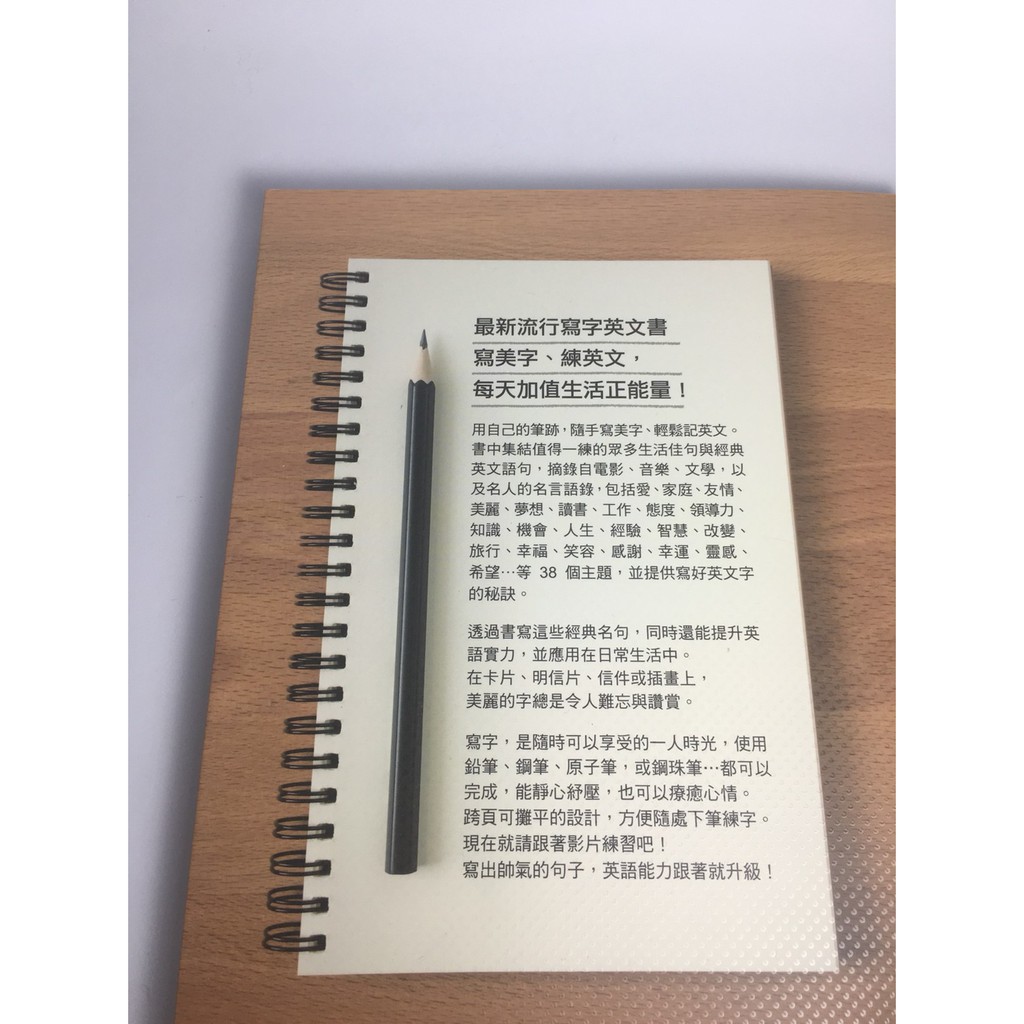 最新流行寫字英文書
寫美字、練英文，
每天加值生活正能量！
用自己的筆跡，隨手寫美字、輕鬆記英文。
書中集結值得一練的眾多生活佳句與經典
英文語句，摘錄自電影、音樂、文學，以
及名人的名言語錄，包括愛、家庭、友情、
美麗、夢想、讀書、工作、態度、領導力、
知識、機會、人生、經驗、智慧、改變、
旅行、幸福、笑容、感謝、幸運、靈感、
希望…等 38 個主題，並提供寫好英文字
的秘訣。
透過書寫這些經典名句，同時還能提升英
語實力，並應用在日常生活中。
在卡片、明信片、信件或插畫上，
美麗的字總是令人難忘與讚賞。
寫字，是隨時可以享受的一人時光，使用
鉛筆、鋼筆、原子筆，或鋼珠筆…都可以
完成，能靜心紓壓，也可以療癒心情。
跨頁可攤平的設計，方便隨處下筆練字。
現在就請跟著影片練習吧！
寫出帥氣的句子，英語能力跟著就升級！